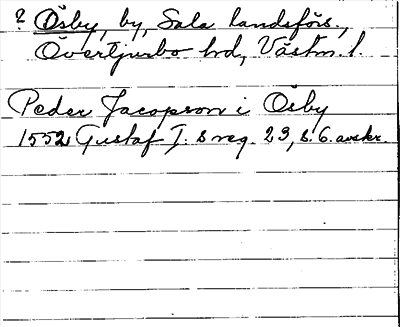 ? Ösby, by, Sala landsförs.,
Övertjurbo hd, Västm. l.
Peder Jacopson i Ösby
1552 Gustaf I. s reg. 23, s. 6. avskr.